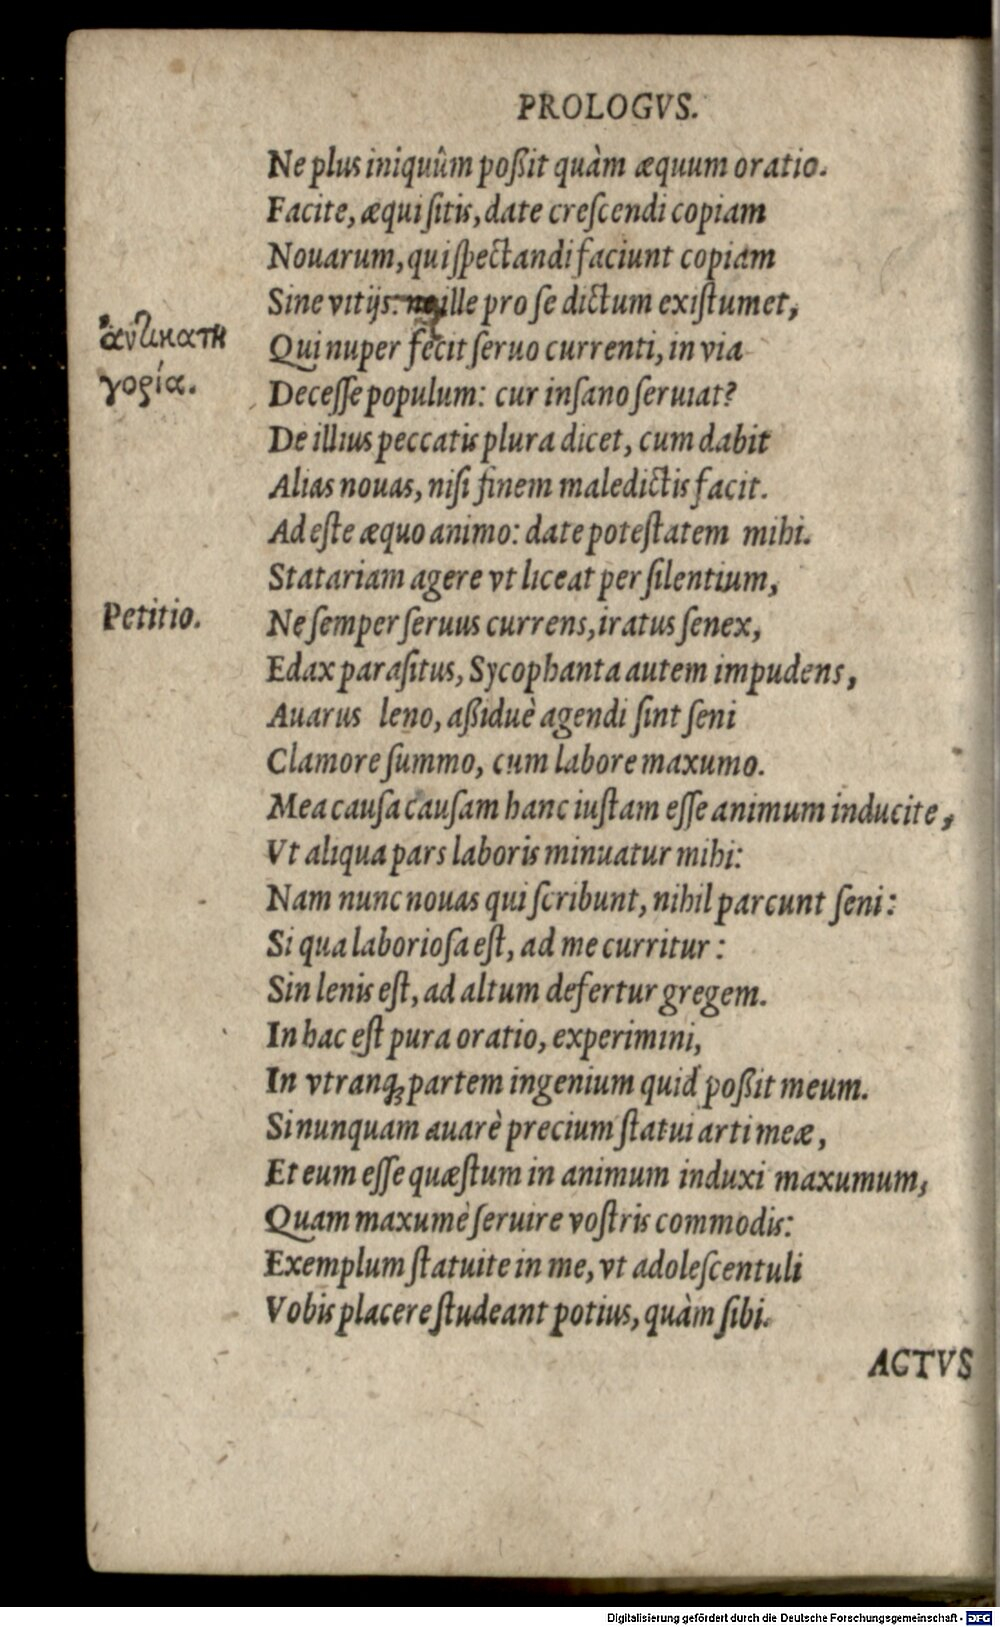 PROLOGVS.
Ne plus iniquûm poßit quàm æquum oratio.
Facite, æqui ſitis, date creſcendi copiam
Nouarum, qui ſpectandi faciunt copiam
Sine vitijs: ille pro ſe dictum exiſtumet,
ἀντικατη
Qui nuper fecit ſeruo currenti, in via
γορία.
Deceſſe populum: cur inſano ſeruiat?
De illius peccatis plura dicet, cum dabit
Alias nouas, niſi finem maledictis facit.
Adeſte æquo animo: date poteſtatem mihi.
Statariam agere vt liceat per ſilentium,
Petitio.
Ne ſemper ſeruus currens, iratus ſenex,
Edax paraſitus, Sycophanta autem impudens,
Auarus leno, aßiduè agendi ſint ſeni
Clamore ſummo, cum labore maxumo.
Mea cauſa cauſam hanc iuſtam eſſe animum inducite,
Vt aliqua pars laboris minuatur mihi:
Nam nunc nouas qui ſcribunt, nihil parcunt ſeni:
Si qua laborioſa eſt, ad me curritur:
Sin lenis eſt, ad altum defertur gregem.
In hac eſt pura oratio, experimini,
In vtranq; partem ingenium quid poßit meum.
Si nunquam auarè precium ſtatui arti meæ,
Et eum eſſe quæſtum in animum induxi maxumum,
Quam maxumè ſeruire voſtris commodis:
Exemplum ſtatuite in me, vt adoleſcentuli
Vobis placere ſtudeant potius, quàm ſibi.
ACTVS
Digitalisierung gefördert durch die Deutsche Forschungsgemeinschaft - DFG